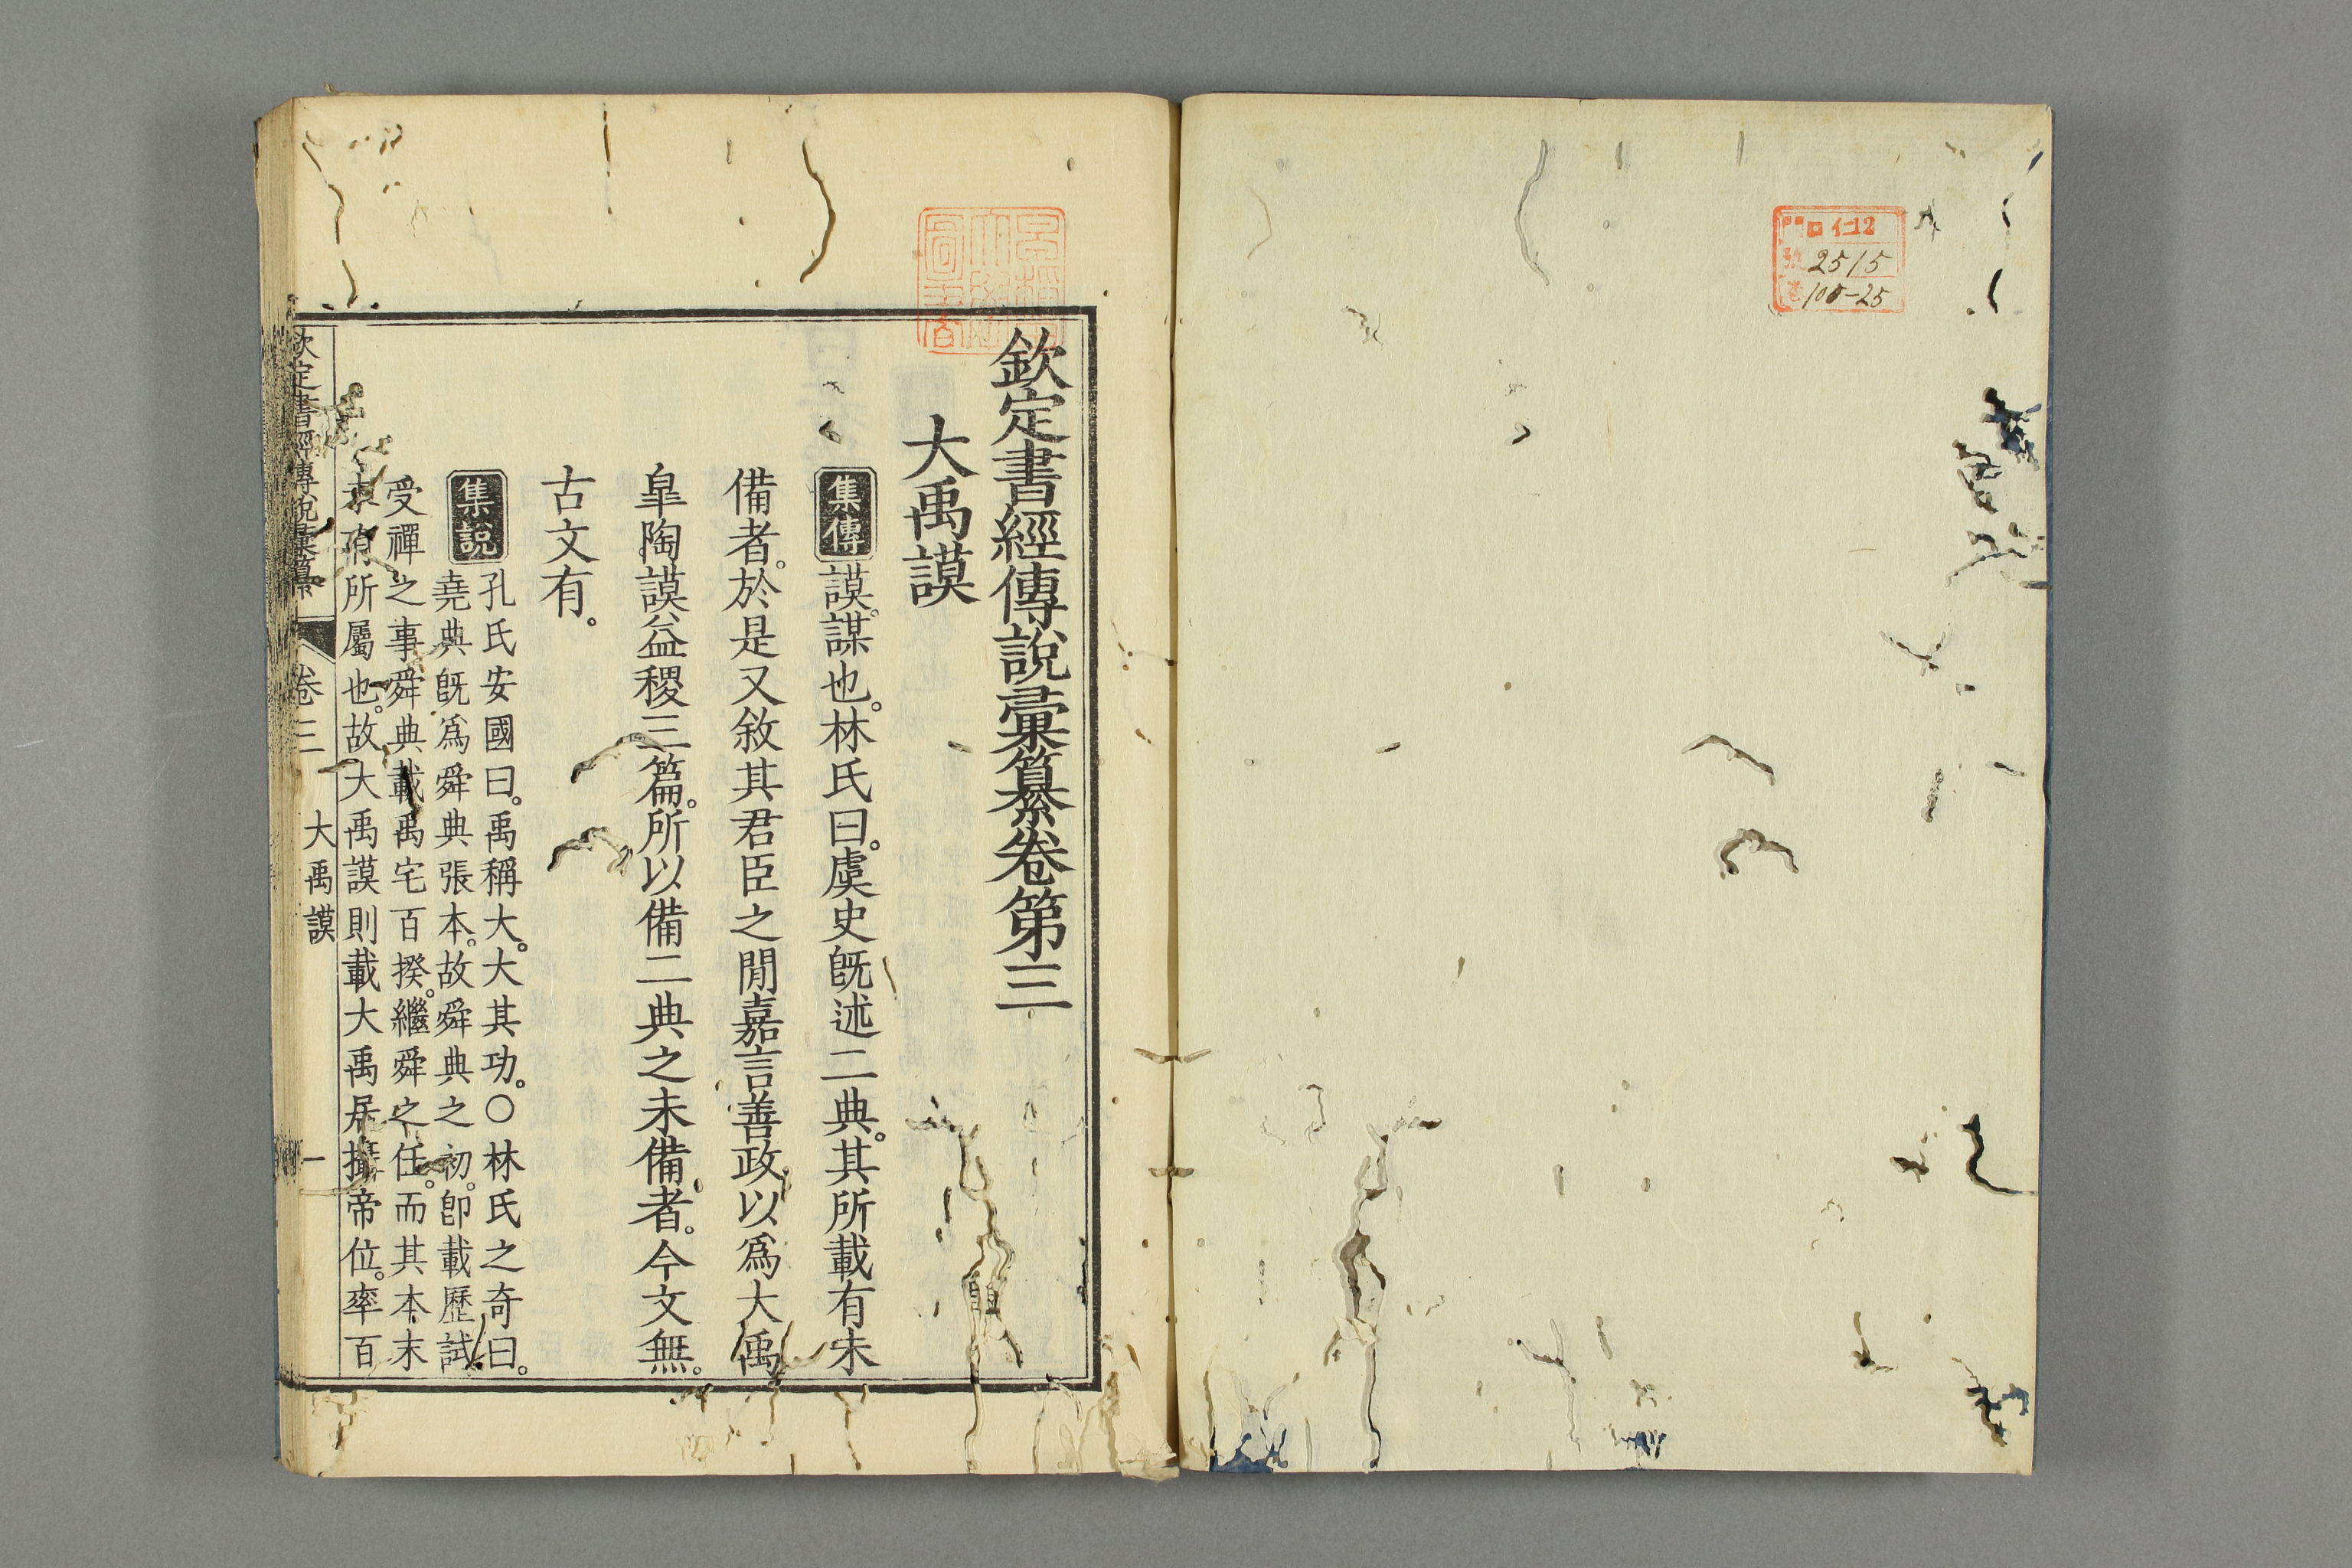 門 口仁12
號 2515
卷 100-25
早稲田大學圖書
欽定書經傳說彙纂卷第三
大禹謨
集傳 謨。謀也。林氏曰。虞史旣述二典。其所載有未
備者。於是又敘其君臣之閒嘉言善政以爲大禹
臯陶謨益稷三篇。所以備二典之未備者。今文無。
古文有。
集說 孔氏安國曰。禹稱大。大其功。○林氏之奇曰。
堯典旣爲舜典張本。故舜典之初。卽載歷試
受禪之事舜典載禹宅百揆。繼舜之任。而其本末
未有所屬也。故大禹謨則載大禹居攝帝位。率百
欽定書經傳說彙纂 卷三 大禹謨 一